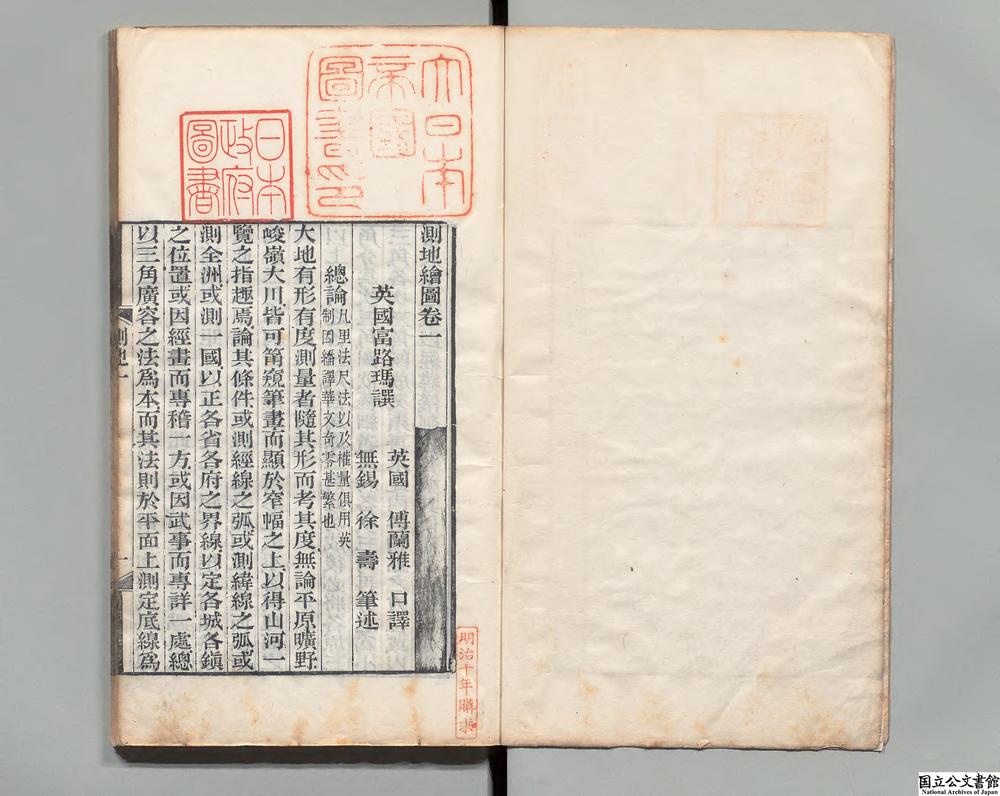 大日本
帝國
圖書印
日本
政府
圖書
測地繪圖卷一
英國富路瑪譔
英國 傅蘭雅 口譯
無錫 徐壽 筆述
總論凡里法尺法以及權量俱用英
制因繙譯華文奇零甚繁也
大地有形有度測量者隨其形而考其度無論平原曠野
峻嶺大川皆可筩窺筆畫而顯於窄幅之上以得山河一
覽之指趣焉論其條件或測經線之弧或測緯線之弧或
測全洲或測一國以正各省各府之界線以定各城各鎭
之位置或因經畫而專稽一方或因武事而專詳一處總
以三角廣容之法爲本而其法則於平面上測定底線爲
測地一
一
明治十年購求
国立公文書館
National Archives of Japan